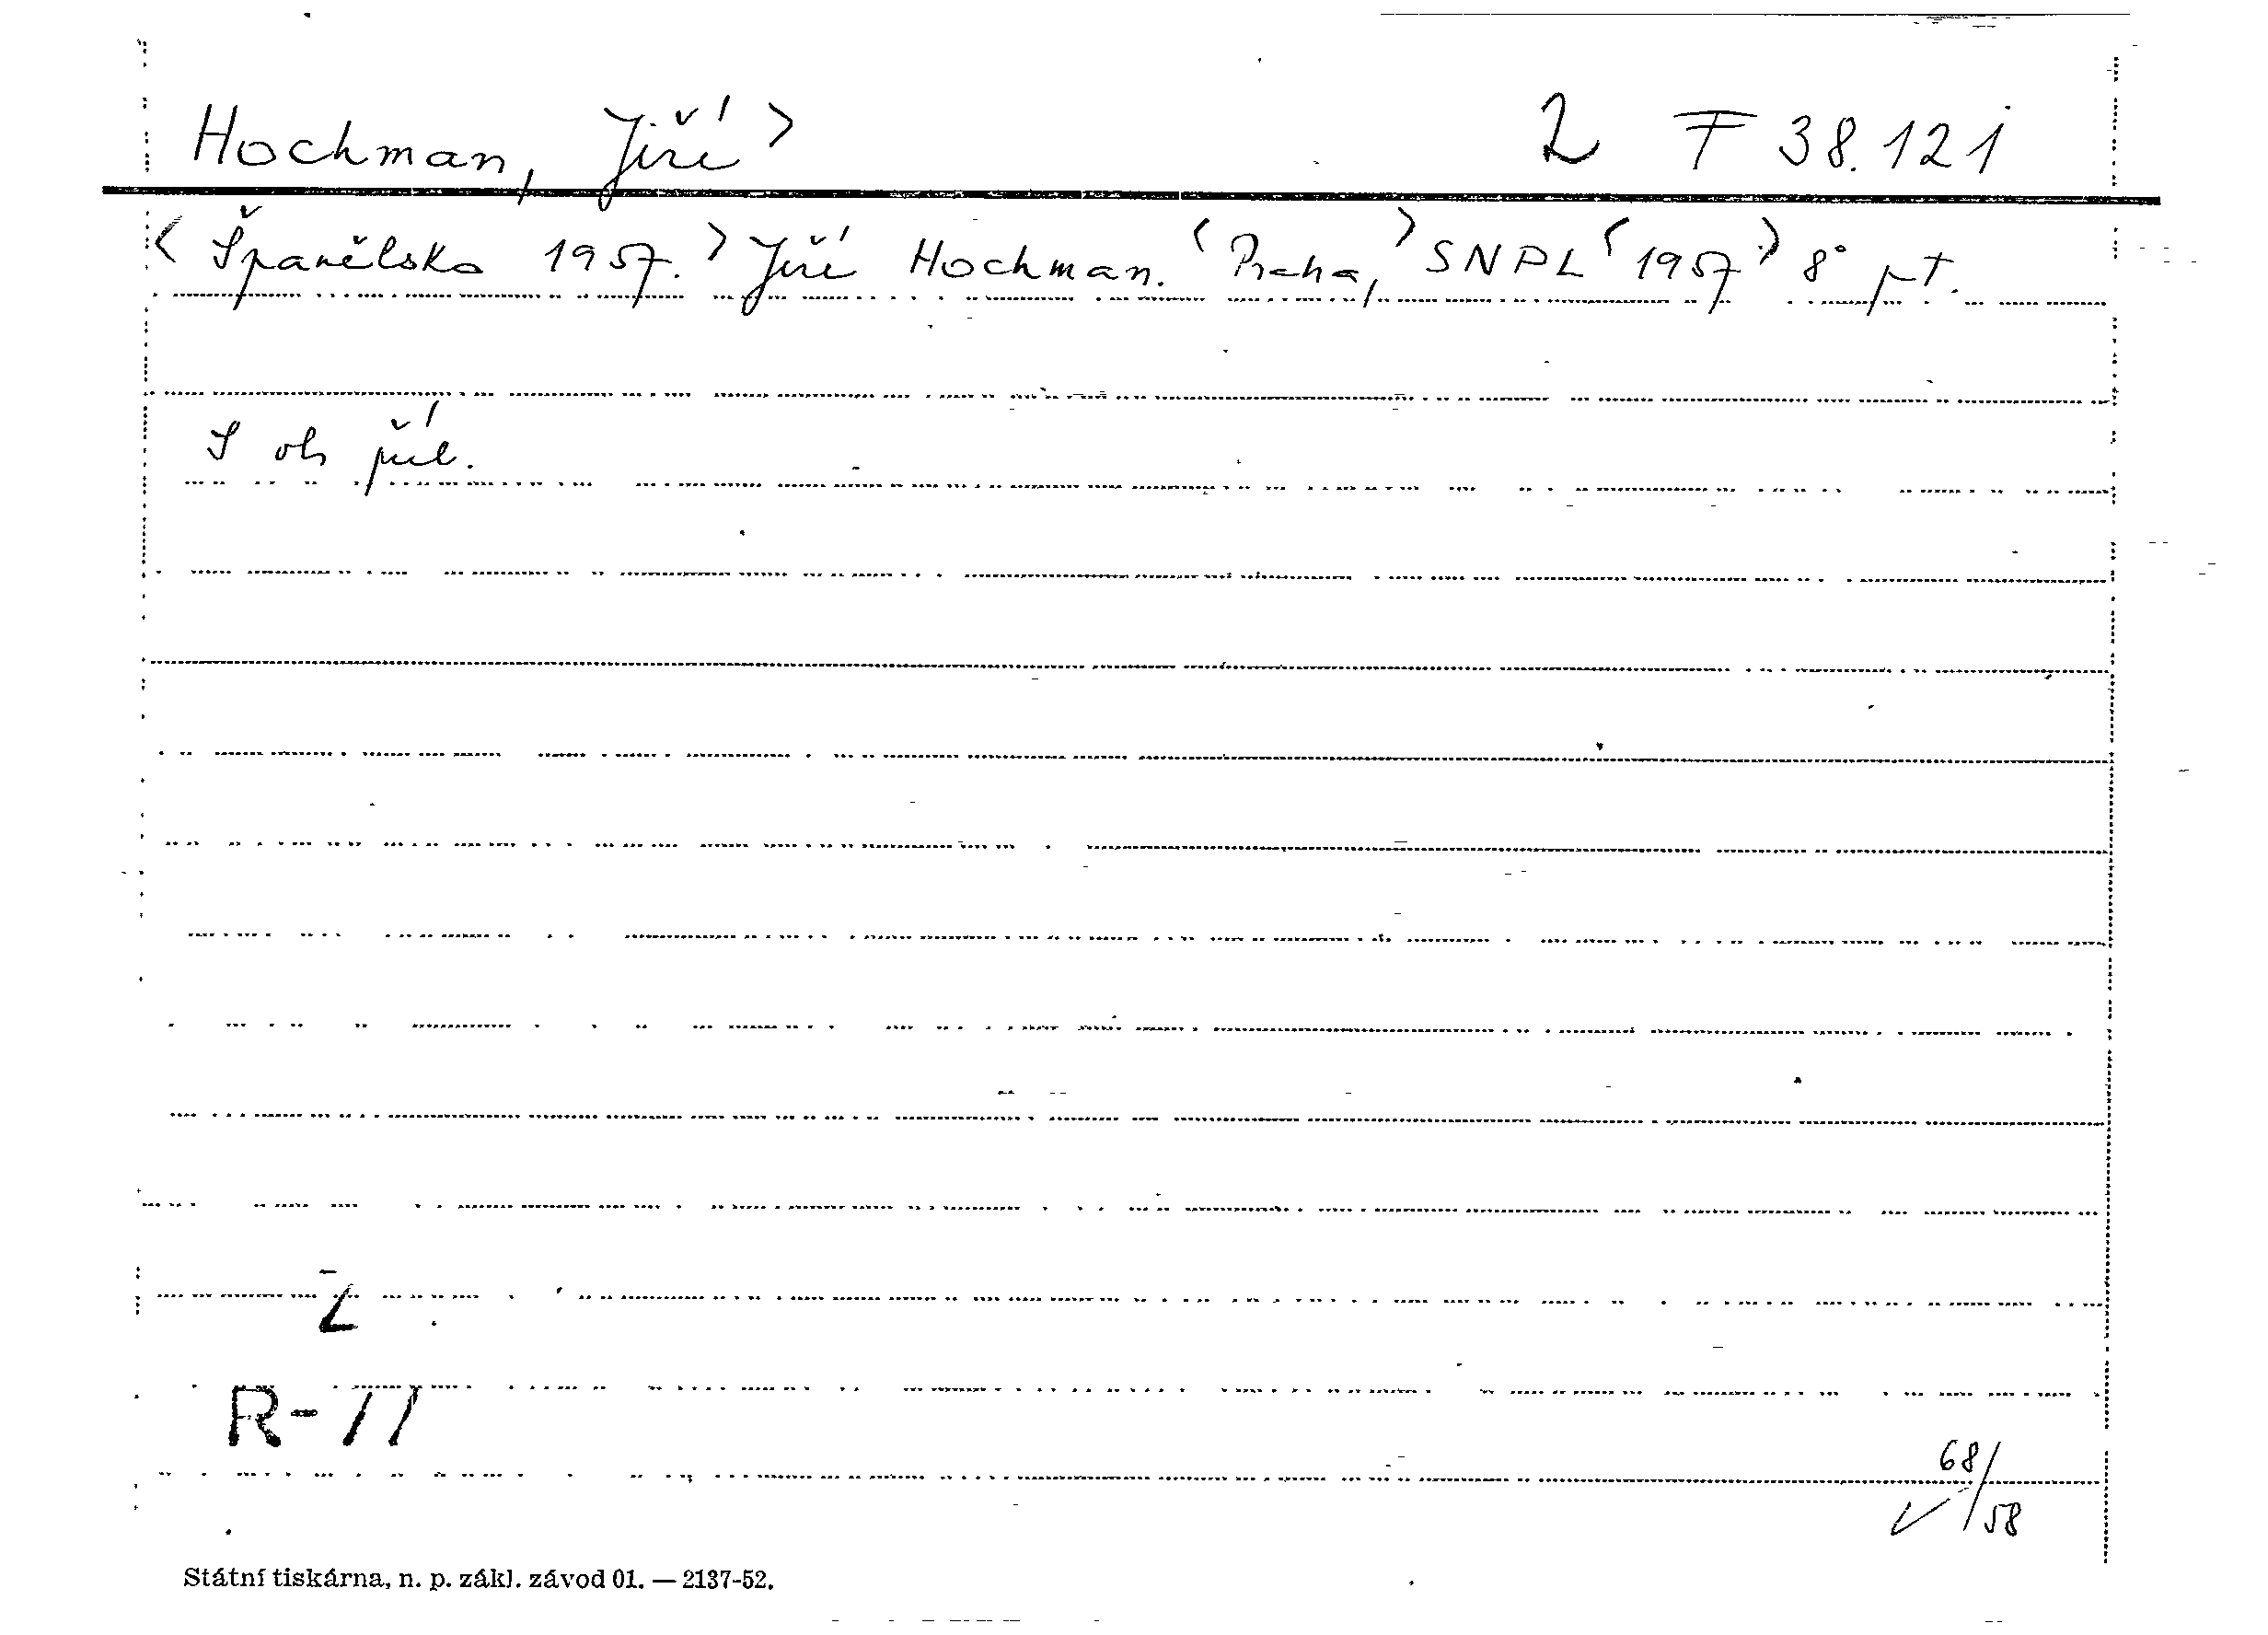 Hochman, Jiří > 2 F 38.121
< Španělsko 1957. > Jiří Hochman. < Praha, > SNPL < 1957 > 8° pt.
S ob příl.
Z
R-11
68/58
Státní tiskárna, n. p. zákl. závod 01. — 2137-52.